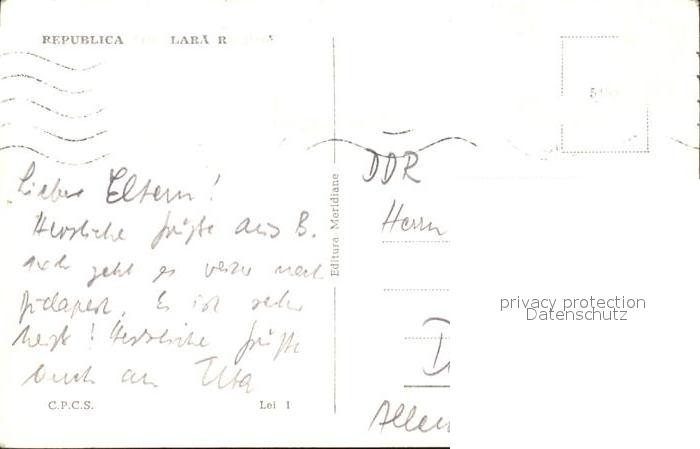 REPUBLICA LARĂ R
Liebe Eltern!
Herzliche Grüße aus B.
geht es weiter nach
Budapest. Es ist sehr
heiß! Herzliche Grüße
auch an Uta
C.P.C.S. Lei 1
Editura Meridiane
DDR
Herrn
privacy protection
Datenschutz